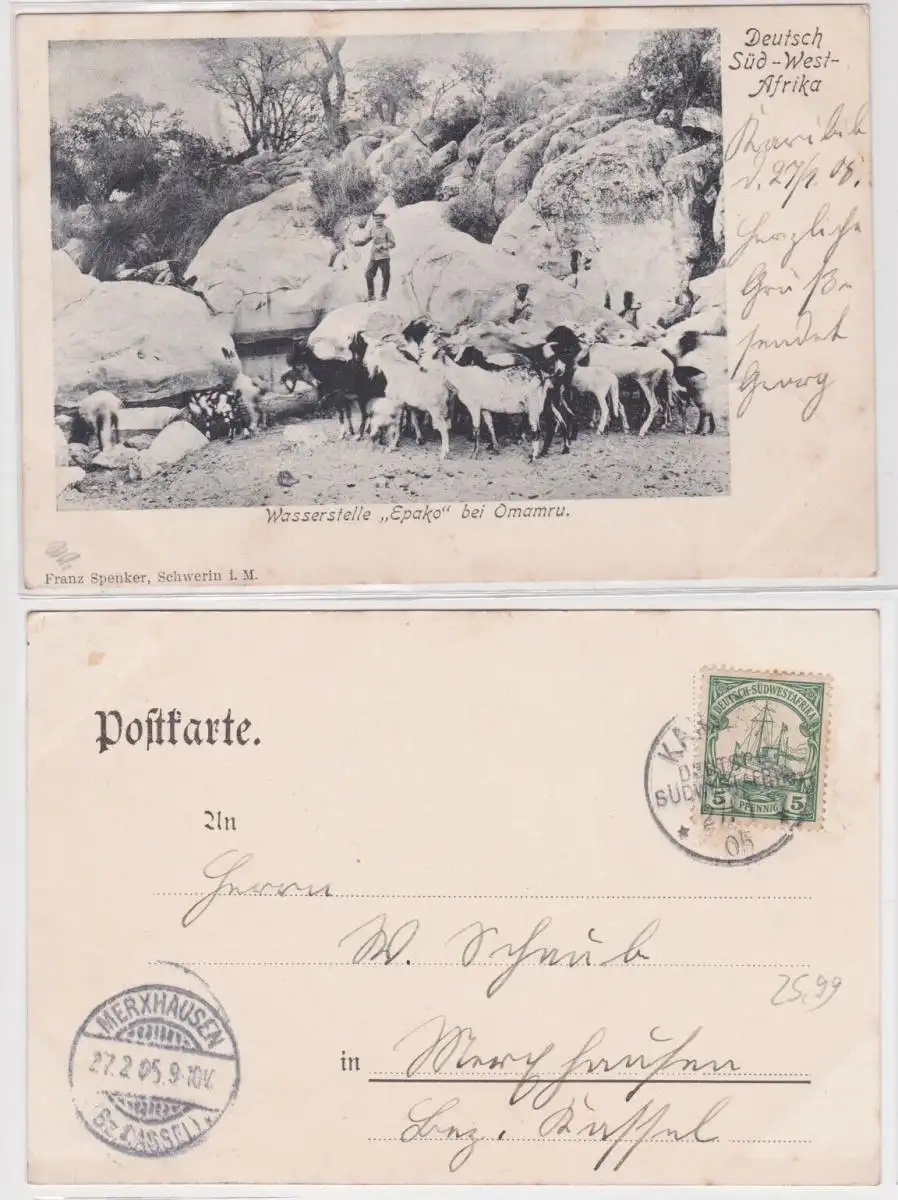 Deutsch
Süd-West-
Afrika
Karibib
d. 27/1. 05.
Herzliche
Grüße
sendet
Georg
Wasserstelle „Epako“ bei Omamru.
Franz Spenker, Schwerin i. M.
Postkarte.
DEUTSCH-SÜDWESTAFRIKA
5 PFENNIG 5
05
An
Herrn
W. Schaub
25,99
in Merxhausen
Bez. Kassel
MERXHAUSEN
27.2.05.9-10V.
(Bz. CASSEL)